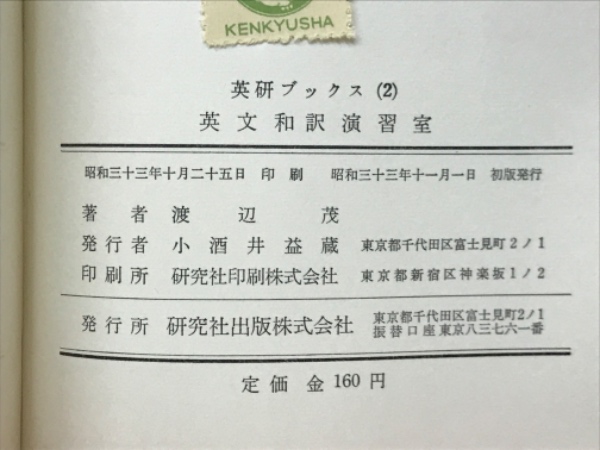 KENKYUSHA
英研ブックス (2)
英文和訳演習室
昭和三十三年十月二十五日 印刷 昭和三十三年十一月一日 初版発行
著者 渡辺茂
発行者 小酒井益蔵 東京都千代田区富士見町2ノ1
印刷所 研究社印刷株式会社 東京都新宿区神楽坂1ノ2
発行所 研究社出版株式会社 東京都千代田区富士見町2ノ1
振替口座東京八三七六一番
定価金160円